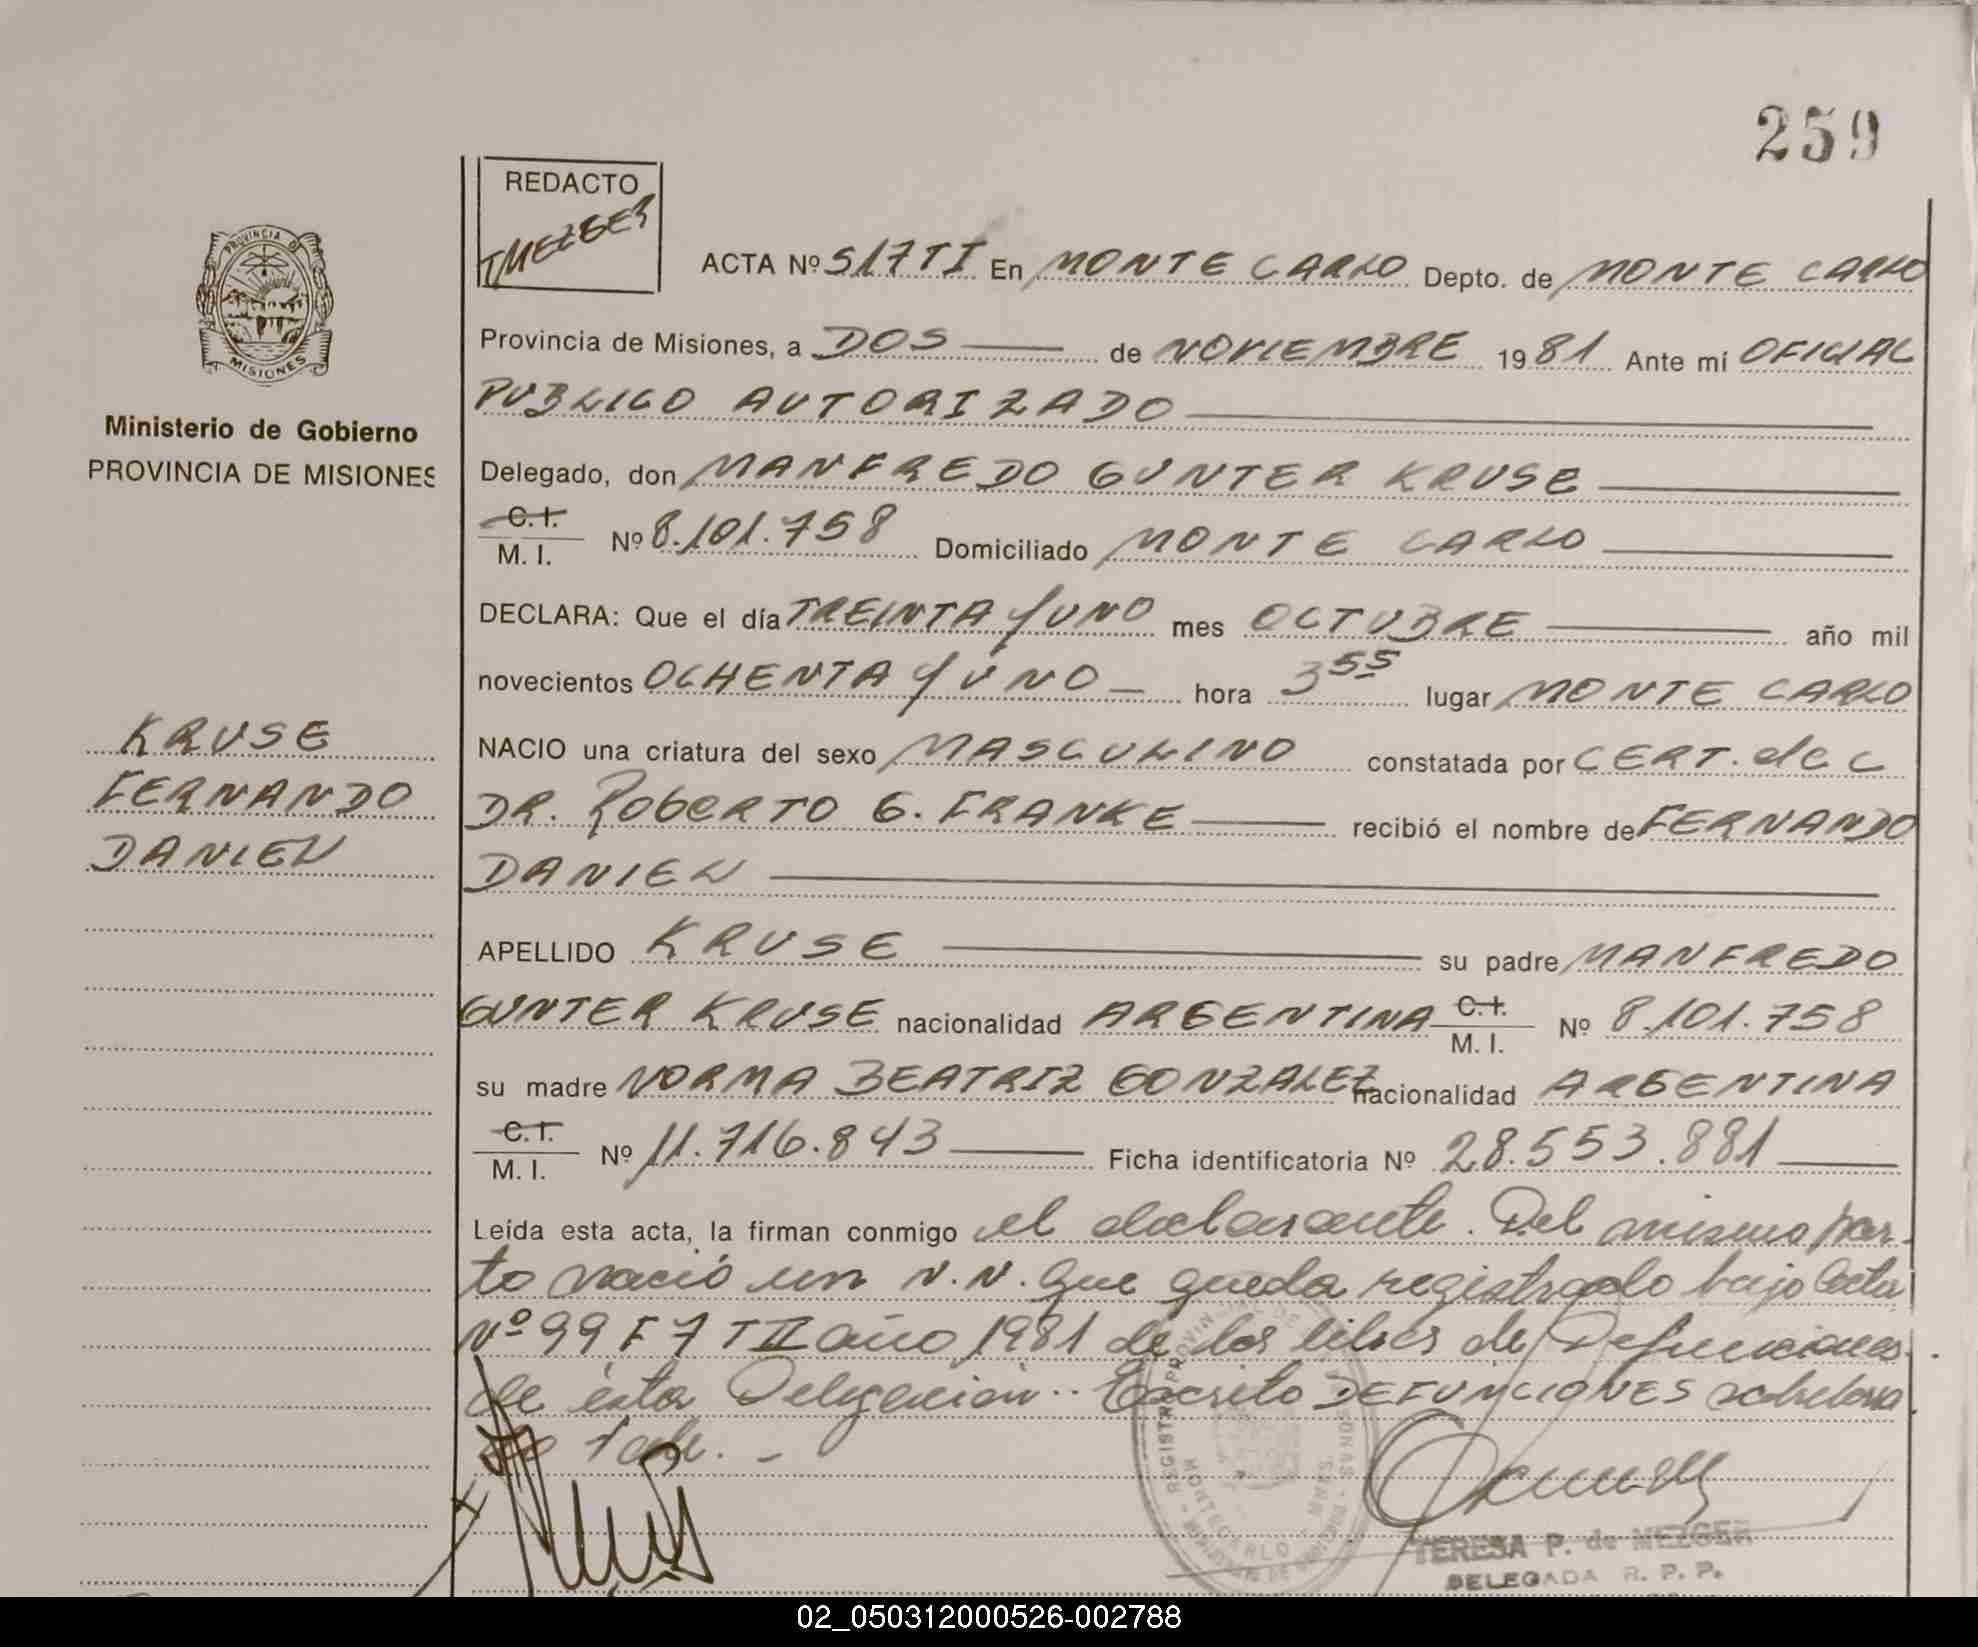 259
REDACTO
TMEZGER
PROVINCIA D
MISIONES
Ministerio de Gobierno
PROVINCIA DE MISIONES
KRUSE
FERNANDO
DANIEL
ACTA Nº 517 TI En MONTE CARLO Depto. de MONTE CARLO
Provincia de Misiones, a DOS de NOVIEMBRE 1981 Ante mí OFICIAL
PUBLICO AUTORIZADO
Delegado, don MANFREDO GUNTER KRUSE
C. I.
M. I. Nº 8.101.758 Domiciliado MONTE CARLO
DECLARA: Que el día TREINTA Y UNO mes OCTUBRE año mil
novecientos OCHENTA Y UNO hora 3 55 lugar MONTE CARLO
NACIO una criatura del sexo MASCULINO constatada por CERT. de
DR. ROBERTO G. FRANKE recibió el nombre de FERNANDO
DANIEL
APELLIDO KRUSE su padre MANFREDO
GUNTER KRUSE nacionalidad ARGENTINA C.I. M. I. Nº 8.101.758
su madre NORMA BEATRIZ GONZALEZ nacionalidad ARGENTINA
C.I.
M. I. Nº 11.716.843 Ficha identificatoria Nº 28.553.881
Leída esta acta, la firman conmigo el declarante. Del mismo par-
to nació un N.N. que queda registrado bajo Acta
Nº 99 F 7 T II año 1981 de los libros de Defunciones
de ésta Delegación.. Escrito DEFUNCIONES sobreborra
do vale. -
TERESA P. de MEZGER
DELEGADA R. P. P.
02_050312000526-002788